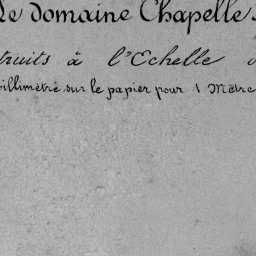 Le domaine Chapelle
truits à l'Echelle d
illimètre sur le papier pour 1 Mètre